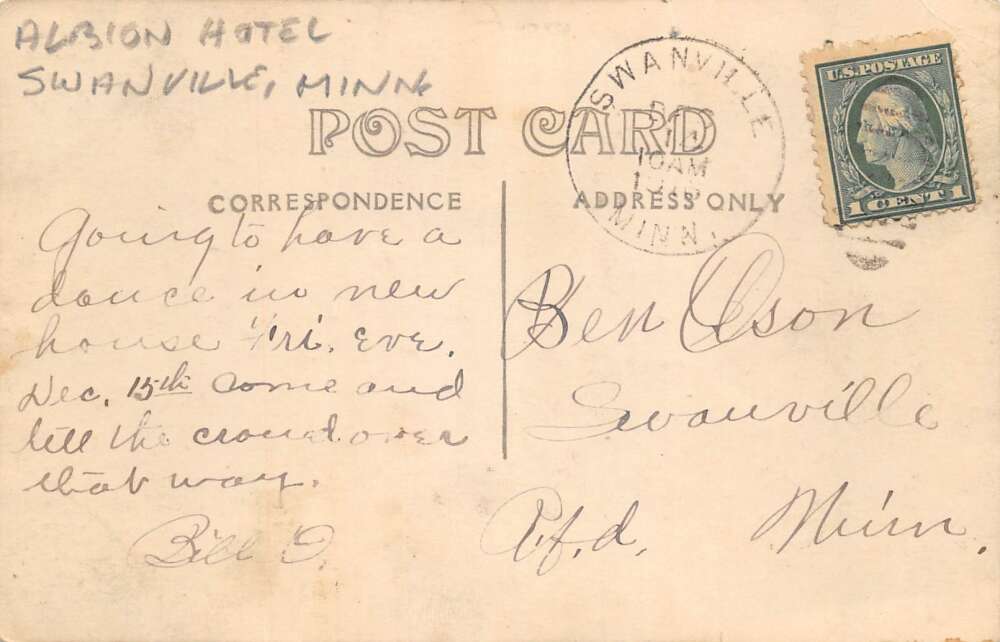 ALBION HOTEL
SWANVILLE, MINN
POST CARD
SWANVILLE
11
10 AM
MINN.
U.S. POSTAGE
1 CENT 1
CORRESPONDENCE
ADDRESS ONLY
Going to have a
dance in new
house Fri. Eve.
Dec. 15th come and
tell the crowd over
that way.
Bill O.
Ben Olson
Swanville
Rfd. Minn.